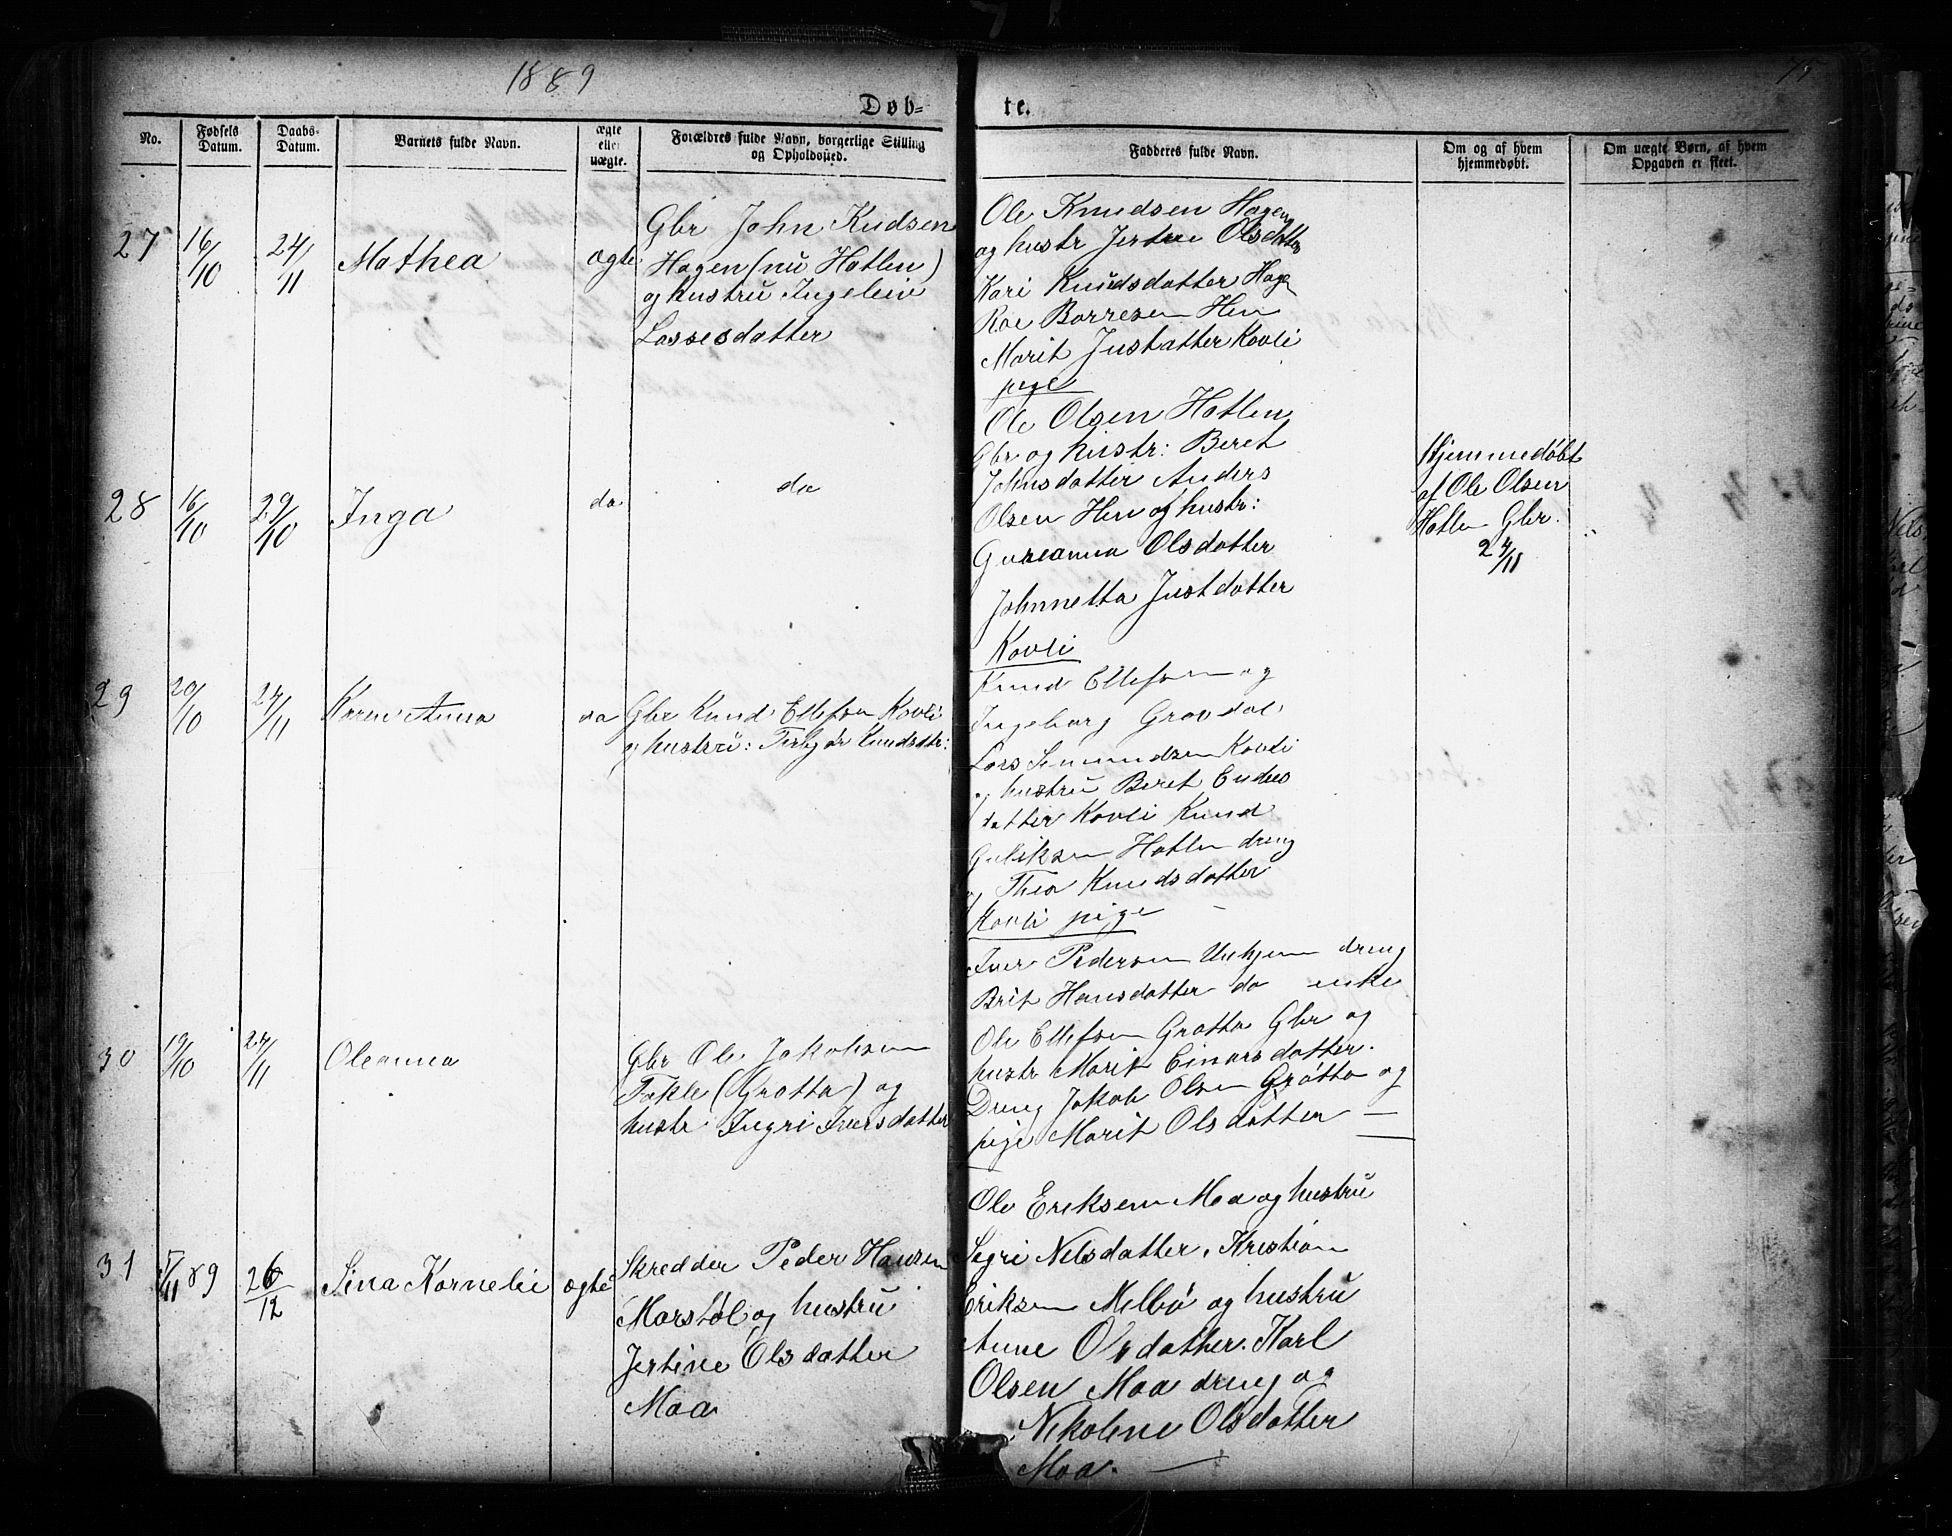 1889
75
Døb-
te.
No.
Fødsels
Datum.
Daabs-
Datum.
Barnets fulde Navn.
ægte
eller
uægte.
Forældres fulde Navn, borgerlige Stilling
og Opholdssted.
Faddernes fulde Navn.
Om og af hvem
hjemmedøbt.
Om uægte Børn, af hvem
Opgaven er skeet.
27
16/10
24/11
Mathea
ægte
Gbr John Kudsen
Hagen (nu Hatlen)
og hustru Ingeleiv
Lassesdatter
Ole Knudsen Hagen
og hustr Jertrue Olsdatter
Kari Knudsdatter Hage
Roe Borresen Hen
Marit Justatter Kavli
pige
28
16/10
29/10
Inga
do
do
Ole Olsen Hatlen
Gbr og hustr: Beret
Johnsdatter Anders
Olsen Hen og hustr:
Gureanna Olsdatter
Johnnetta Justdatter
Kavli
Hjemmedøbt
af Ole Olsen
Hatle Gbr.
24/11
29
20/10
24/11
Karen Anna
do
Gbr Knud Ellefsen Kavli
og hustru: Knudsdtr:
Knud Ellefsen og
Ingeborg Grovdal
Lars Simundsen Kavli
og hustru Beret Endres
datter Kavli Knud
Guliksen Hatlen dreng
og Thea Knudsdatter
Kavli pige
30
19/10
24/11
Oleanna
Gbr Ole Jakobsen
Tokle (Grøtta) og
hustr Ingri Iversdatter
Iver Pedersen Unhjem dreng
Brit Hansdatter do enke
Ole Ellefsen Grøtta Gbr og
hustr Marit Einarsdatter.
Dreng Jakob Olsen Grøtta og
pige Marit Olsdatter —
31
5/11 89
26/12
Sina Kornelie
ægte
Skredder Peder Hansen
Marstøl og hustru
Jertine Olsdatter
Moa
Ole Eriksen Moa og hustru
Segri Nilsdatter, Kristian
Eriksen Melbø og hustru
Anne Olsdatter. Karl
Olsen Moa dreng og
Nikoline Olsdatter
Moa. —